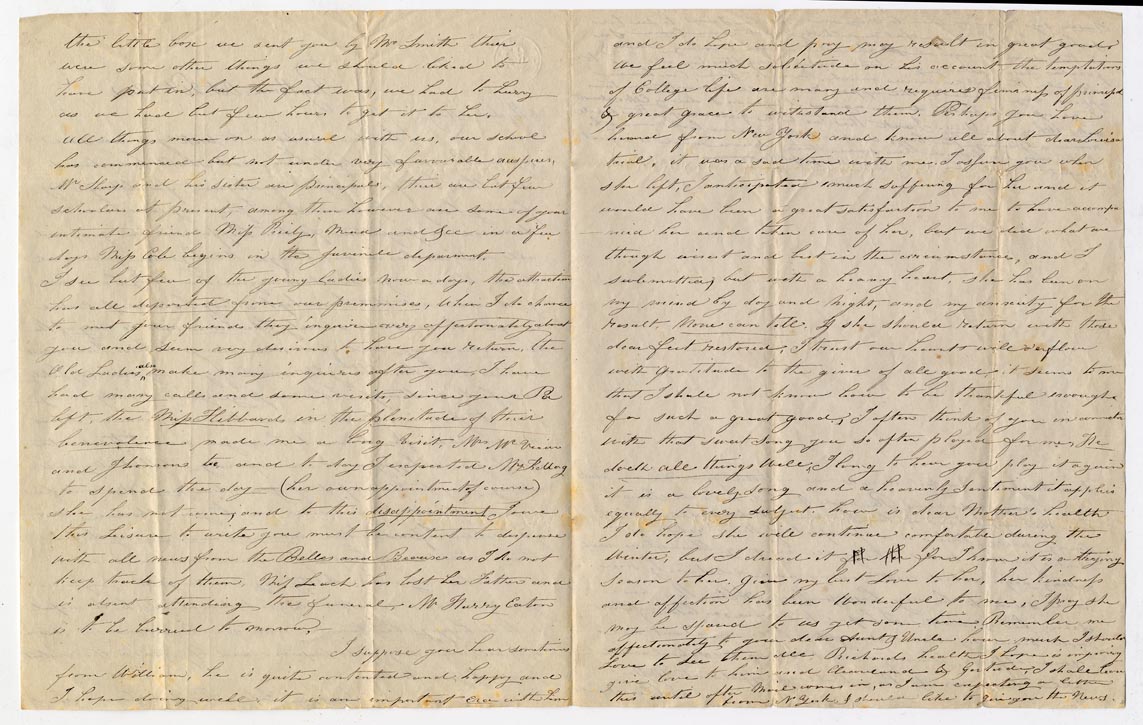 the little box we sent you by Mr Smith their
were some other things we should liked to
have put in, but the fact was, we had to hurry
as we had but few hours to get it to her.
All things move on as usual with us, our school
has commenced but not under very favourable auspices,
Mr and his sister are principals, there are but few
scholars at present, among them however are some of your
intimate friend Miss and in a few
days Miss Cole begins in the Juvenile deparment.
I see but few of the young Ladies now a days, the attraction
has all departed from our premmises, When I do chance
to meet your friends they inquire very affectionately about
you and seem very desirous to have you return, the
Old Ladies also make many inquiries after you, I have
had many calls and some visits, since your Pa
left, the Miss Hibbards in the plenitude of their
benevolence made me a long visit, Mrs
and and to day I expected Mrs Kellog
to spend the day — (her own appointment of course)
she has not come, and to this disappointment I owe
this leisure to write you must be content to dispense
with all news from the Belles and Beaux as I do not
keep track of them, Miss Leach has lost her Father and
is absent attending the funeral, Mr Harry Eaton
is to be burried to morrow.
I suppose you hear sometimes
from William, he is quite contented and happy and
I hope doing well, it is an important with him
and I do hope and pray may result in great good,
we feel much solicitude on his account the temptations
of College life are many and requires firmness of
& great grace to withstand them. Perhaps you have
heard from New York and know all about dear
trial, it was a sad time with me, I assure you when
she left, I anticipated much suffering for her and it
would have been a great satisfaction to me to have accompa
nied her and taken care of her, but we did what we
though wisest and best in the circumstance, and I
submitted, but with a heavy heart, she has been on
my mind by day and Night, and my anxiety for the
result, None can tell. If she should return with those
dear feet restored, I trust our hearts will overflow
with gratitude to the giver of all good it seems to me
that I shall not know how to be thankful enough
for such a great good, I often think of you in connection
with that sweet song you so often played for me, He
doeth all things Well, I long to hear you play it again
it is a lovely song and a heavenly sentiment it applies
equally to every subject. how is dear Mother's health
I do hope she will continue comfortable during the
Winter, but I dread it for I know it is a trying
season to her, give my best Love to her, her kindness
and affection has been Wonderful to me, I pray she
may be spared to us yet some time Remember me
affectionately to your dear Aunt & Uncle how much I should
Love to See them all Richards health I hope is improving
give love to him and Cleaveland & Gertrude, I shall leave
this until after More come in, as I am expecting a letter
from N York & should like to give you the News.